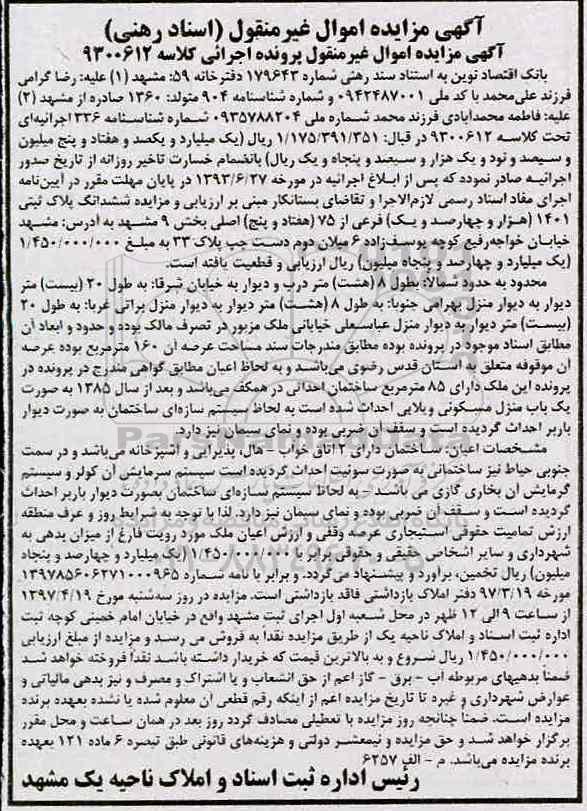 آگهی مزایده اموال غیرمنقول (اسناد رهنی)
آگهی مزایده اموال غیرمنقول پرونده اجرائی کلاسه ۹۳۰۰۶۱۲
بانک اقتصاد نوین به استناد سند رهنی شماره ۱۷۹۶۴۳ دفترخانه ۵۹: مشهد (۱) علیه: رضا گرامی
فرزند علی‌محمد با کد ملی ۰۹۴۲۴۸۷۰۰۱ و شماره شناسنامه ۹۰۴ متولد: ۱۳۶۰ صادره از مشهد (۲)
علیه: فاطمه محمدآبادی فرزند محمد شماره ملی ۰۹۳۵۷۸۸۲۰۴ شماره شناسنامه ۳۳۶ اجرائیه‌ای
تحت کلاسه ۹۳۰۰۶۱۲ در قبال: ۱/۱۷۵/۳۹۱/۳۵۱ ریال (یک میلیارد و یکصد و هفتاد و پنج میلیون
و سیصد و نود و یک هزار و سیصد و پنجاه و یک ریال) بانضمام خسارت تاخیر روزانه از تاریخ صدور
اجرائیه صادر نموده که پس از ابلاغ اجرائیه در مورخه ۱۳۹۳/۶/۲۷ در پایان مهلت مقرر در آیین‌نامه
اجرای مفاد اسناد رسمی لازم‌الاجرا و تقاضای بستانکار مبنی بر ارزیابی و مزایده ششدانگ پلاک ثبتی
۱۴۰۱ (هزار و چهارصد و یک) فرعی از ۷۵ (هفتاد و پنج) اصلی بخش ۹ مشهد به آدرس: مشهد
خیابان خواجه‌ربیع کوچه یوسف‌زاده ۶ میلان دوم دست چپ پلاک ۳۳ به مبلغ ۱/۴۵۰/۰۰۰/۰۰۰
(یک میلیارد و چهارصد و پنجاه میلیون) ریال ارزیابی و قطعیت یافته است.
محدود به حدود شمالا: بطول ۸ (هشت) متر درب و دیوار به خیابان شرقا: به طول ۲۰ (بیست) متر
دیوار به دیوار منزل بهرامی جنوبا: به طول ۸ (هشت) متر دیوار به دیوار منزل براتی غربا: به طول ۲۰
(بیست) متر دیوار به دیوار منزل عباسعلی خیابانی ملک مزبور در تصرف مالک بوده و حدود و ابعاد آن
مطابق اسناد موجود در پرونده بوده مطابق مندرجات سند مساحت عرصه آن ۱۶۰ مترمربع بوده عرصه
آن موقوفه متعلق به آستان قدس رضوی می‌باشد و به لحاظ اعیان مطابق گواهی مندرج در پرونده در
پرونده این ملک دارای ۸۵ مترمربع ساختمان احداثی در همکف می‌باشد و بعد از سال ۱۳۸۵ به صورت
یک باب منزل مسکونی ویلایی احداث شده است به لحاظ سیستم سازه‌ای ساختمان به صورت دیوار
باربر احداث گردیده است و سقف آن ضربی بوده و نمای سیمان نیز دارد.
مشخصات اعیان: ساختمان دارای ۲ اتاق خواب - هال، پذیرایی و آشپزخانه می‌باشد و در سمت
جنوبی حیاط نیز ساختمانی به صورت سوئیت احداث گردیده است سیستم سرمایش آن کولر و سیستم
گرمایش آن بخاری گازی می باشد - به لحاظ سیستم سازه‌ای ساختمان بصورت دیوار باربر احداث
گردیده است و سقف آن ضربی بوده و نمای سیمان نیز دارد. لذا با توجه به شرایط روز و عرف منطقه
ارزش تمامیت حقوقی استیجاری عرصه وقفی و ارزش اعیان ملک مورد رویت فارغ از میزان بدهی به
شهرداری و سایر اشخاص حقیقی و حقوقی برابر با ۱/۴۵۰/۰۰۰/۰۰۰ (یک میلیارد و چهارصد و پنجاه
میلیون) ریال تخمین، برآورد و پیشنهاد می‌گردد. و برابر با نامه شماره ۱۳۹۷۸۵۶۰۶۲۷۱۰۰۰۹۶۵
مورخه ۹۷/۳/۱۹ دفتر املاک بازداشتی فاقد بازداشتی است. مزایده در روز سه‌شنبه مورخ ۱۳۹۷/۴/۱۹
از ساعت ۹ الی ۱۲ ظهر در محل شعبه اول اجرای ثبت مشهد واقع در خیابان امام خمینی کوچه ثبت
اداره ثبت اسناد و املاک ناحیه یک از طریق مزایده نقدا به فروش می رسد و مزایده از مبلغ ارزیابی
۱/۴۵۰/۰۰۰/۰۰۰ ریال شروع و به بالاترین قیمت که خریدار داشته باشد نقدا فروخته خواهد شد
ضمنا بدهیهای مربوطه آب - برق - گاز اعم از حق انشعاب و یا اشتراک و مصرف و نیز بدهی مالیاتی و
عوارض شهرداری و غیره تا تاریخ مزایده اعم از اینکه رقم قطعی آن معلوم شده یا نشده بعهده برنده
مزایده است. ضمنا چنانچه روز مزایده با تعطیلی مصادف گردد روز بعد در همان ساعت و محل مقرر
برگزار خواهد شد و حق مزایده و نیمعشر دولتی و هزینه‌های قانونی طبق تبصره ۶ ماده ۱۲۱ بعهده
برنده مزایده می‌باشد. م - الف ۶۲۵۷
رئیس اداره ثبت اسناد و املاک ناحیه یک مشهد